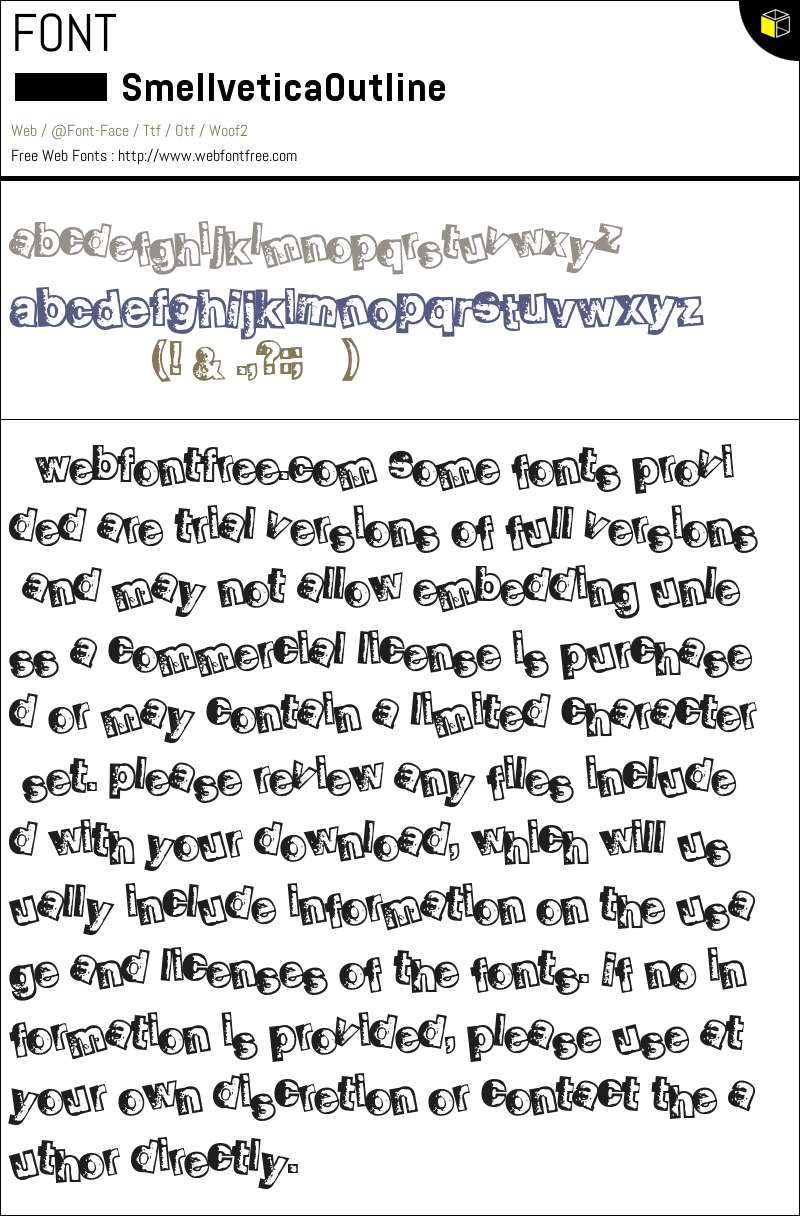 FONT
SmellveticaOutline
Web / @Font-Face / Ttf / Otf / Woof2
Free Web Fonts : http://www.webfontfree.com
abcdefghijklmnopqrstuvwxyz
abcdefghijklmnopqrstuvwxyz
(! & .,?:; )
webfontfree.com Some fonts provi
ded are trial versions of full versions
and may not allow embedding unle
ss a commercial license is purchase
d or may contain a limited character
set. please review any files include
d with your download, which will us
ually include information on the usa
ge and licenses of the fonts. if no in
formation is provided, please use at
your own discretion or contact the a
uthor directly.